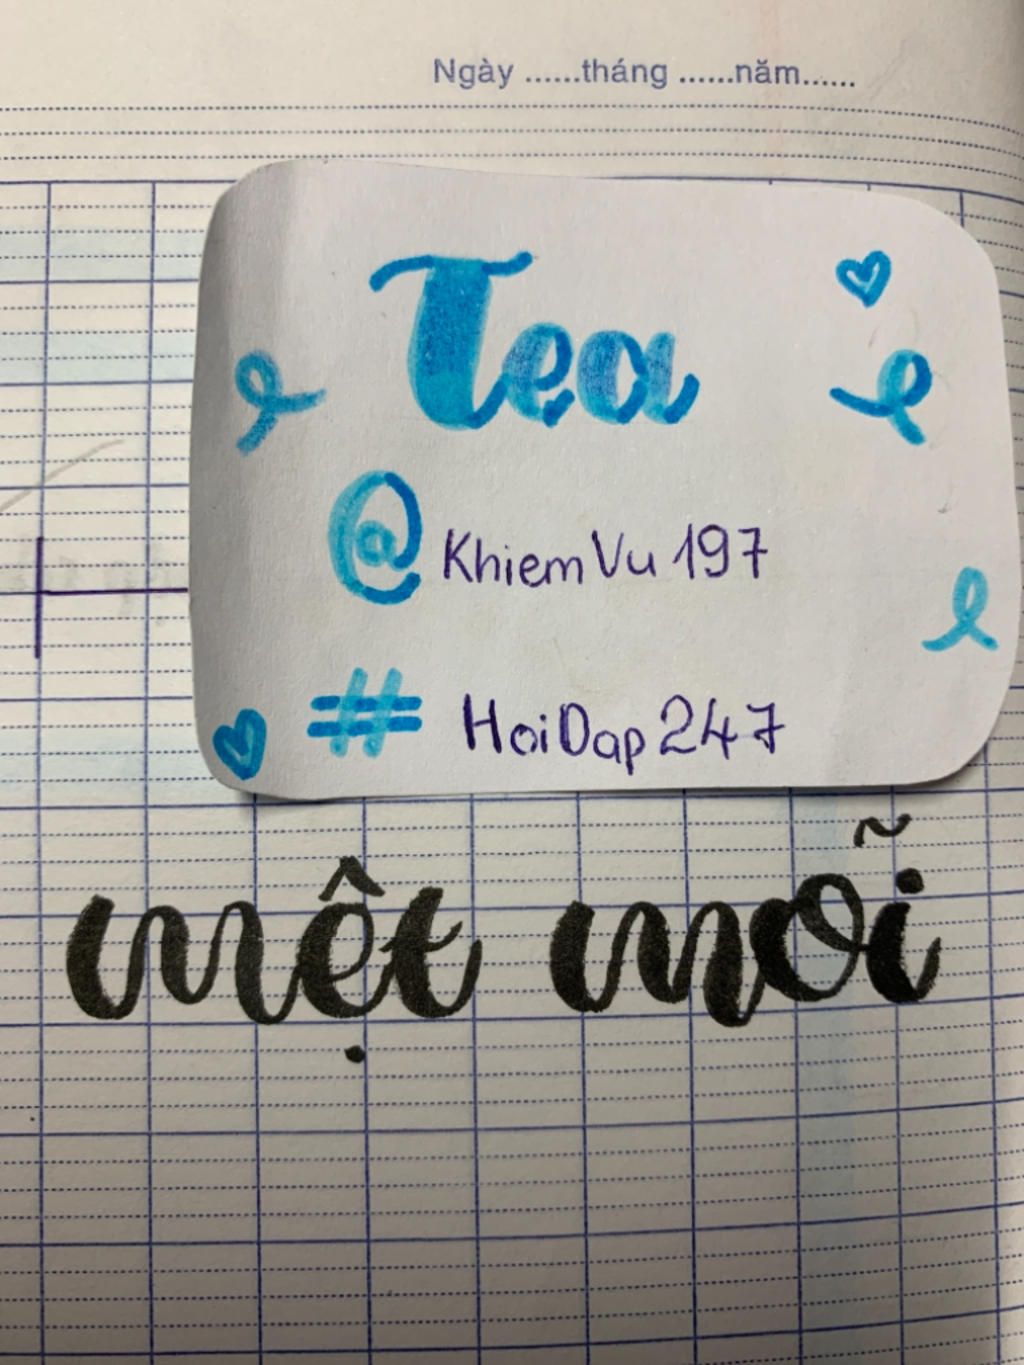 Ngày ......tháng ......năm......
Tea
@KhiemVu197
#HoiDap247
mệt mỗi